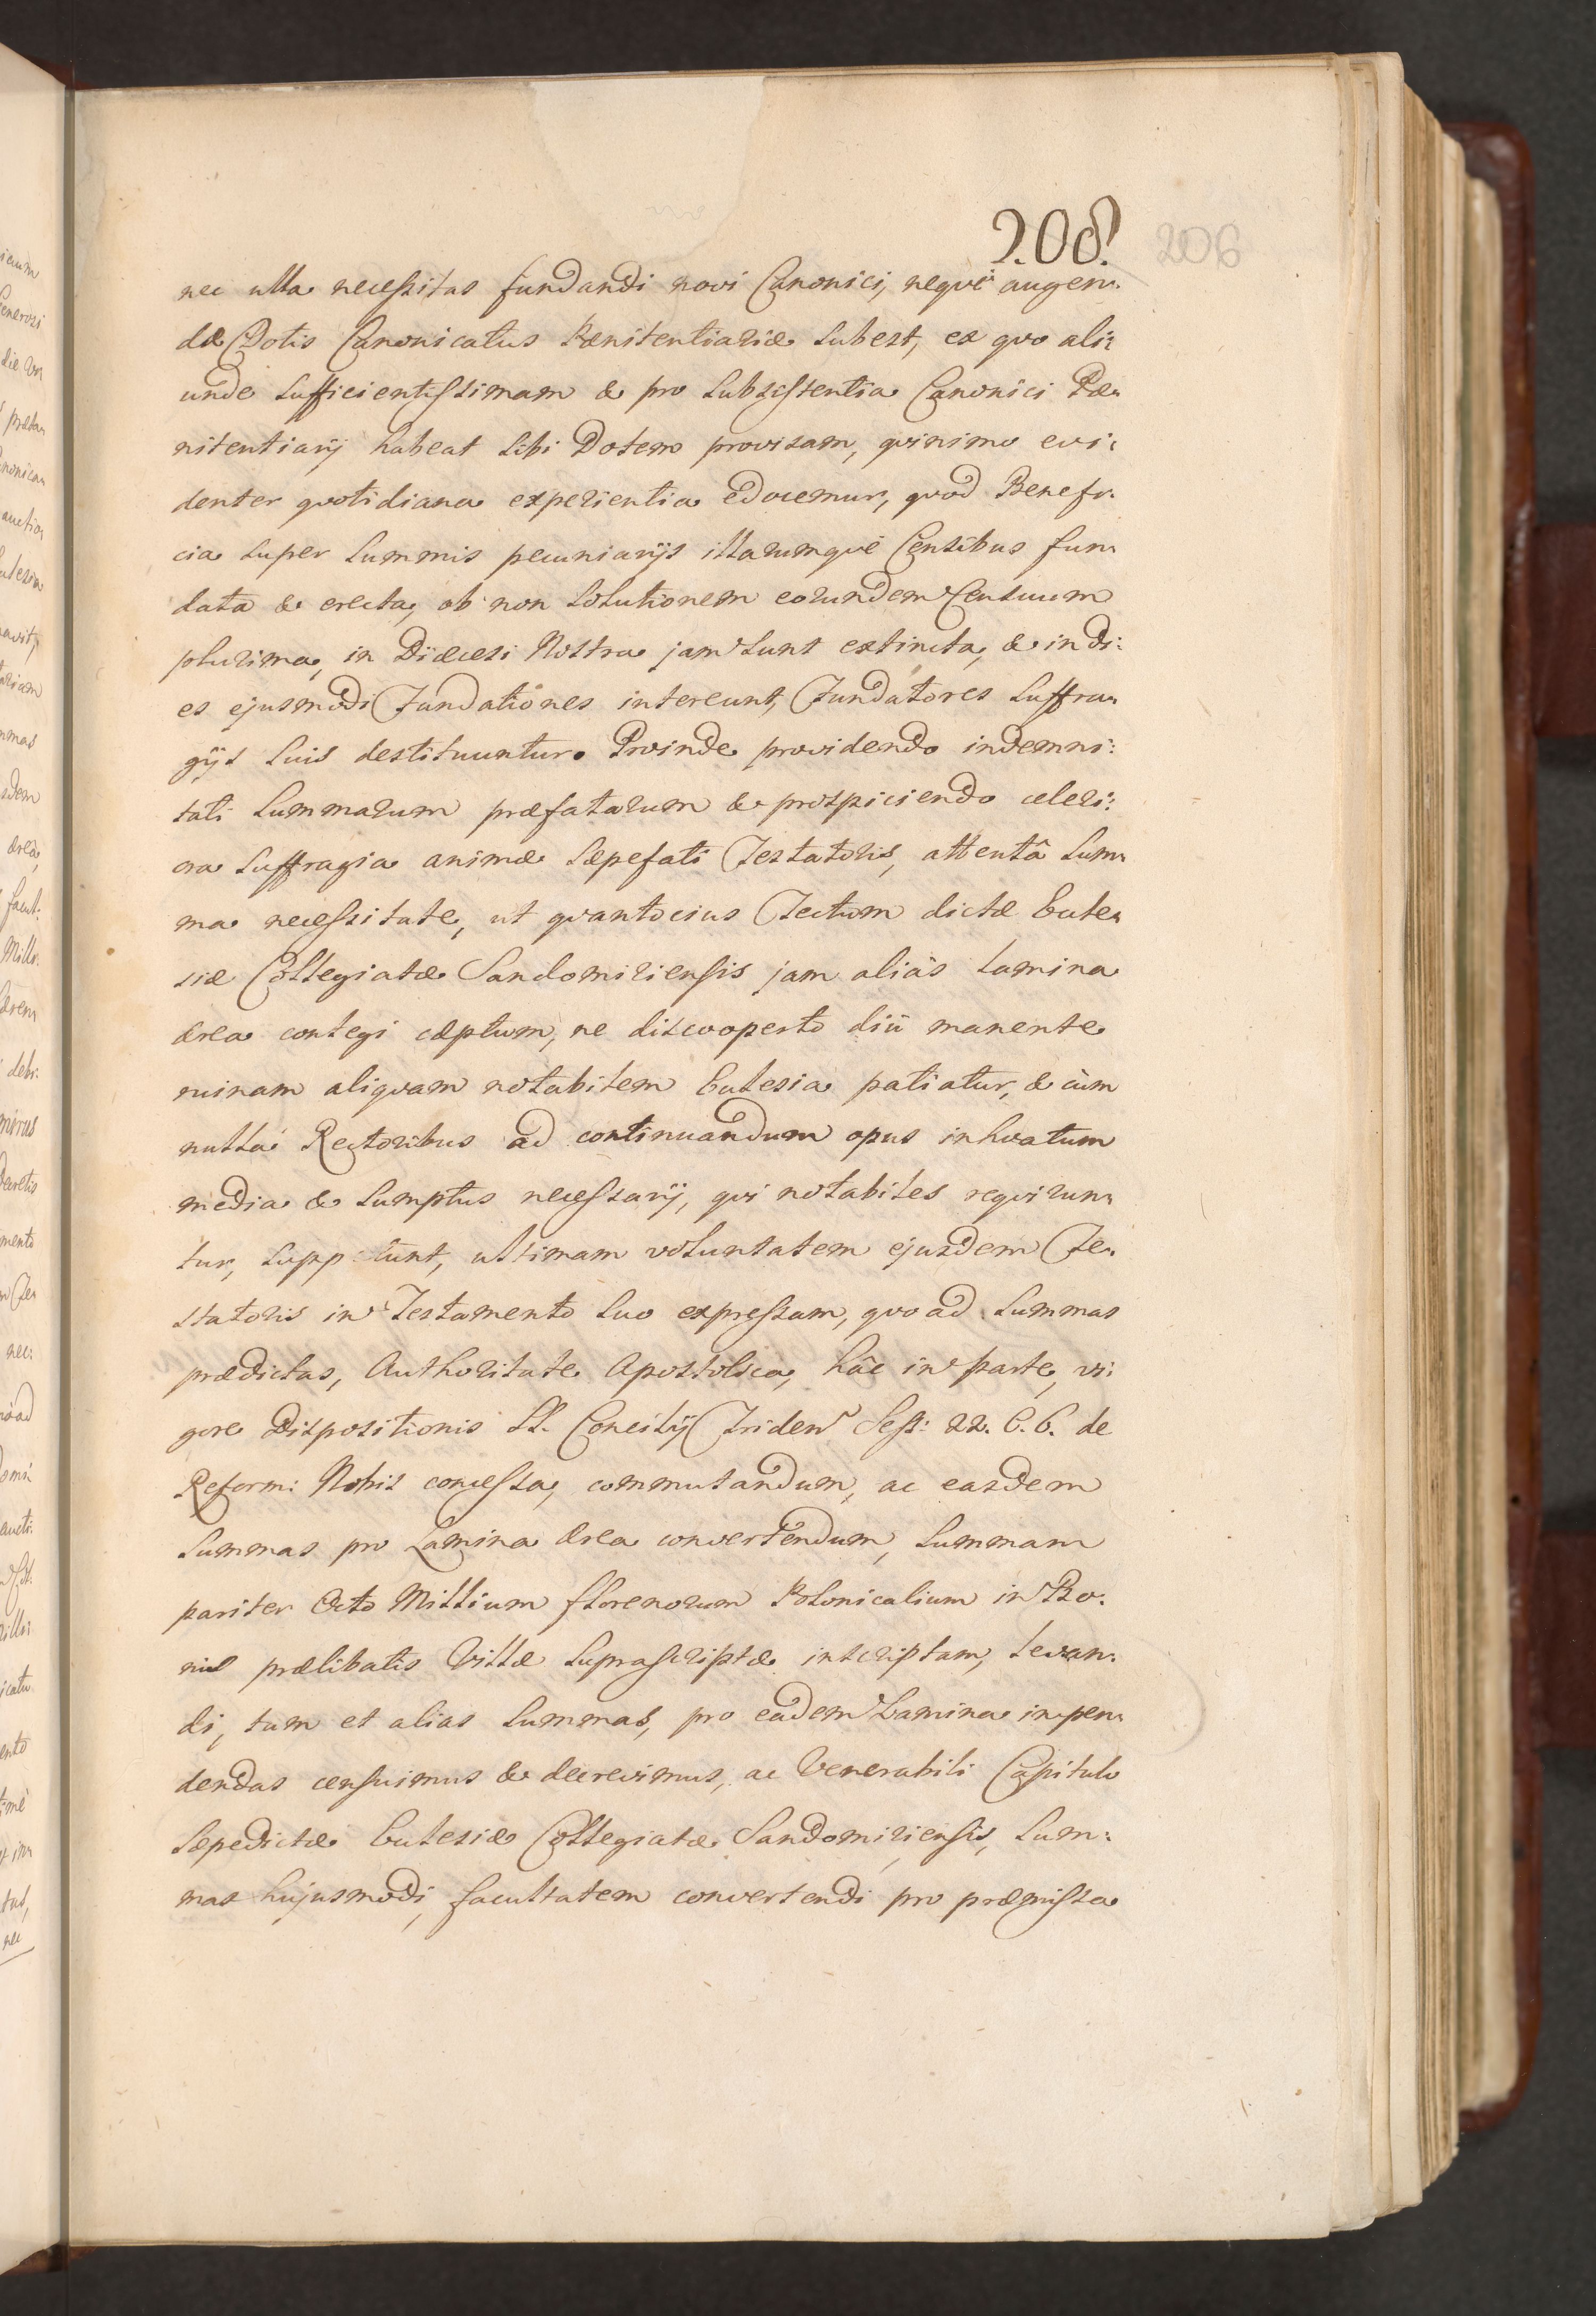 208.
206
nec ulla necessitas fundandi novi Canonici, neqvè augen:
dæ Dotis Canonicatus Pænitentiariæ subest, ex qvo ali:
unde sufficientissimam & pro subsistentia Canonici Pæ:
nitentiarij habeat sibi Dotem provisam, qvinimo evi:
denter qvotidiana experientia edocemur, qvod Benefi:
cia super summis pecuniarijs illarumqvè Censibus fun:
data & erecta, ob non solutionem eorundem Censuum
plurima, in Diæcesi Nostra jam sunt extincta, & in di:
es ejusmodi Fundationes intereunt, Fundatores suffra:
gijs suis destituuntur. Proinde providendo indemni:
tati summarum præfatarum & prospiciendo celeri:
ora suffragia animæ sæpefati Testatoris, attentâ sum:
ma necessitate, ut qvantocius Tectum dictæ Eccle:
siæ Collegiatæ Sandomiriensis jam aliàs lamina
ærea contegi cæptum, ne discooperto diù manente
ruinam aliqvam notabilem Ecclesia patiatur, & cùm
nulla Rectoribus ad continuandum opus inhoatum
media & sumptus necessarij, qvi notabiles reqvirun:
tur, suppetunt, ultimam voluntatem ejusdem Te:
statoris in Testamento suo expressam, qvo ad summas
prædictas, Authoritate Apostolica, hâc in parte, vi:
gore Dispositionis SS. Concilij Triden Sess: 22. C. 6. de
Reform: Nobis concessa, commutandum, ac easdem
summas pro Lamina ærea convertendum, summam
pariter Octo Millium florenorum Polonicalium in Bo:
nis prælibatis Villæ suprascriptæ inscriptam, levan:
di, tum et alias summas, pro eadem Lamina inpen:
dendas censuimus & decrevimus, ac Venerabili Capitulo
sæpedictæ Ecclesiæ Collegiatæ Sandomiriensis, sum:
mas hujusmodi, facultatem convertendi pro præmissa